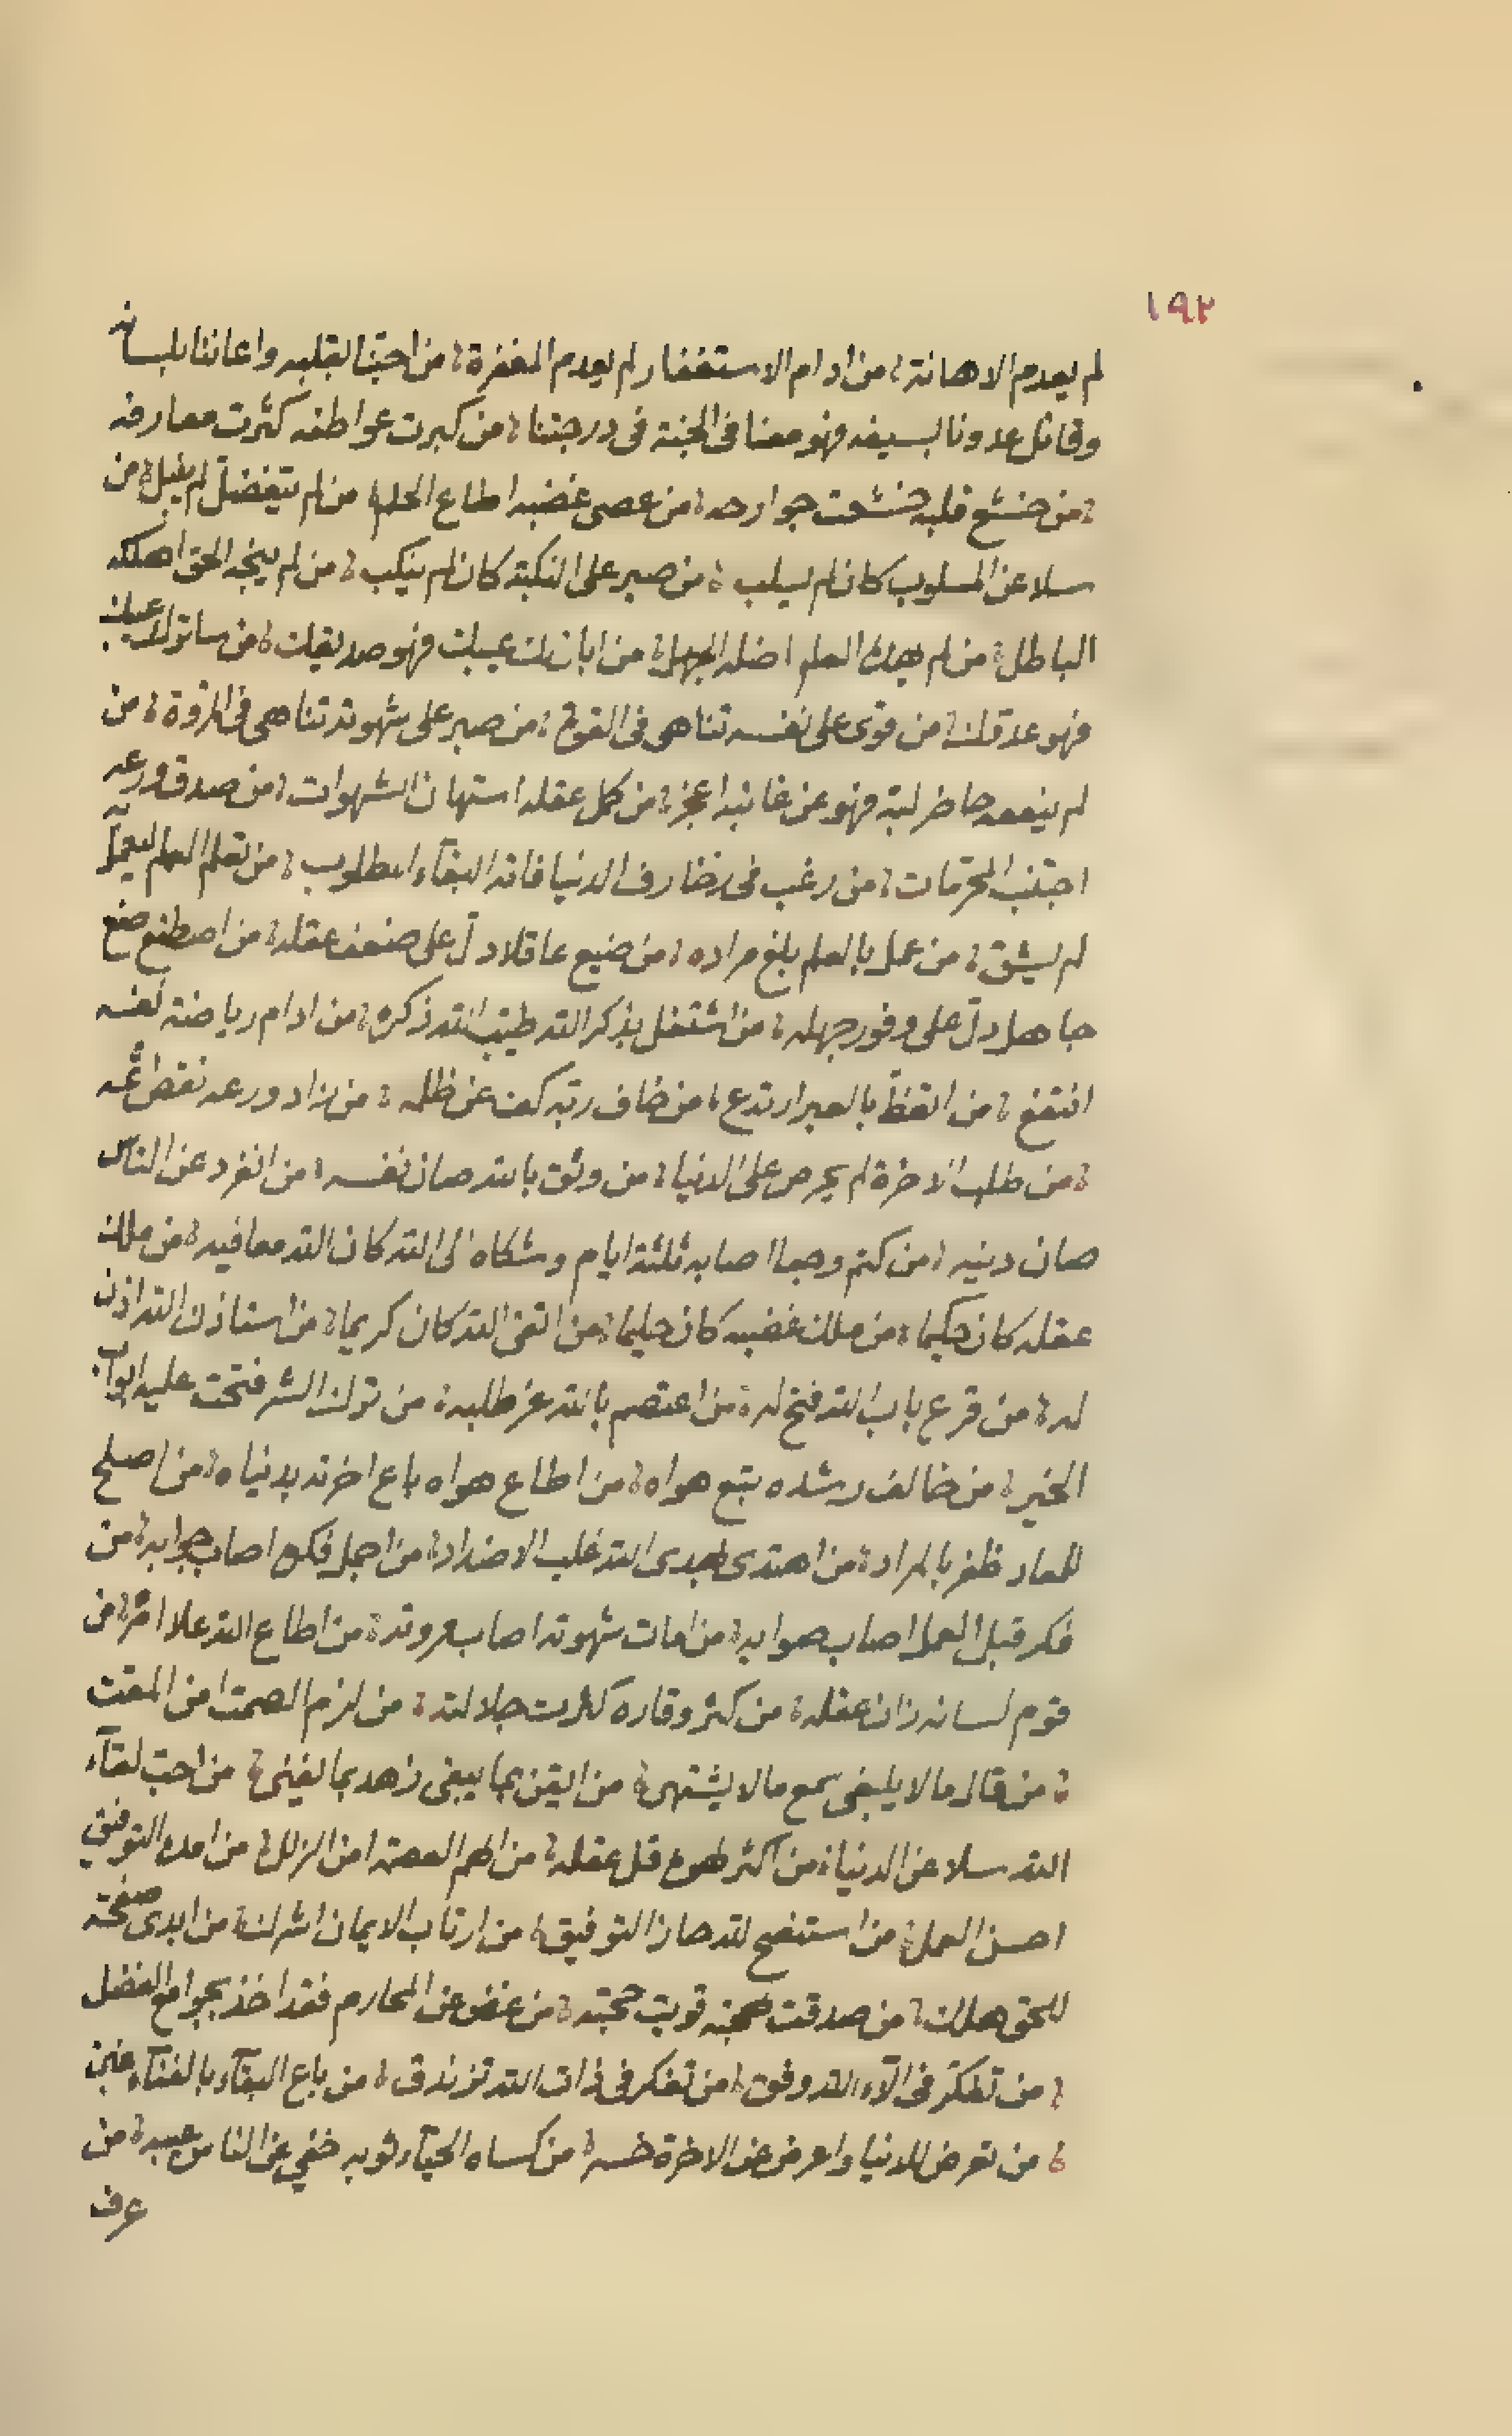 ١٩٢
لم يعدم الاهانة ؛ من ادام الاستغفار لم يعدم المغفرة ؛ من احبّنا بقلبه واعاننا بلسانه
وقاتل عدونا بسيفه فهو معنا فى الجنة فى درجتنا ؛ من كبرت عواطفه كثرت معارفه
؛ من خشع قلبه خشعت جوارحه ؛ من عصى غضبه اطاع الحلم ؛ من لم يتفضل لم ينبل ؛ من
سلا عن المسلوب كان لم يسلب ؛ من صبر على النكبة كان لم ينكب ؛ من لم ينجه الحق اهلكه
الباطل ؛ من لم يهده العلم اضله الجهل ؛ من ابان لك عيبك فهو صديقك ؛ من ساتر لك عيبك
فهو عدوك ؛ من قوى على نفسه تناهى فى القوة ؛ من صبر على شهوته تناهى فى المروة ؛ من
لم ينفعه حاضر لبه فهو عن غائبه اعجز ؛ من كمل عقله استهان الشهوات ؛ من صدق ورعه
اجتنب المحرّمات ؛ من رغب فى زخارف الدنيا فاته البقآء المطلوب ؛ من تعلم العلم للعمل
لم يشق ؛ من عمل بالعلم بلغ مراده ؛ من ضيع عاقلا دلّ على ضعف عقله ؛ من اصطنع
جاهل دلّ على وفور جهله ؛ من اشتغل بذكر الله طيب الله ذكره ؛ من ادام رياضة نفسه
انتفع ؛ من اتعظ بالعبر ارتدع ؛ من خاف ربّه كف عن ظلمه ؛ من زاد ورعه نقص اثمه
؛ من طلب الاخرة لم يحرص على الدنيا ؛ من وثق بالله صان نفسه ؛ من انفرد عن الناس
صان دينه ؛ من كتم وجعا اصابه ثلثة ايام وشكاه الى الله كان الله معافيه ؛ من ملك
عقله كان حكيما ؛ من ملك غضبه كان حليما ؛ من اتقى الله كان كريما ؛ من استاذن الله اذن
له ؛ من قرع باب الله فتح له ؛ من اعتصم بالله عز طلبه ؛ من ترك الشر فتحت عليه ابواب
الخير ؛ من خالف رشده تبع هواه ؛ من اطاع هواه باع اخرته بدنياه ؛ من اصلح
للمعاد ظفر بالمراد ؛ من اهتدى بهدى الله غلب الاضداد ؛ من اجمل فكره اصاب جوابه ؛ من
فكر قبل العمل اصاب صوابه ؛ من امات شهوته اصاب مروته ؛ من اطاع الله علا امره ؛ من
قوم لسانه زان عقله ؛ من كثر وقاره كثرت جلالته ؛ من لزم الصمت امن المقت
؛ من قال ما لا ينبغى سمع ما لا يشتهى ؛ من ايقن بما يبقى زهد بما يفنى ؛ من احبّ لقآء
الله سلا عن الدنيا ؛ من اكثر لهوه قل عقله ؛ من الهم العصمة امن الزلل ؛ من امده التوفيق
احسن العمل ؛ من استنصح لله حاز التوفيق ؛ من ارتاب الايمان اشرك ؛ من ابدى صفحته
للحق هلك ؛ من صدقت قويت حجته ؛ من غض عن المحارم فقد اخذ بجوامع الفضل
؛ من تفكر فى آلآء الله وفق ؛ من تفكر فى ذات الله تزندق ؛ من باع البقآء بالفنآء غبن
؛ من تعرض للدنيا واعرض عن الاخرة خسر ؛ من كساه الحيآء ثوبه خفى عن الناس عيبه ؛ من
عرف